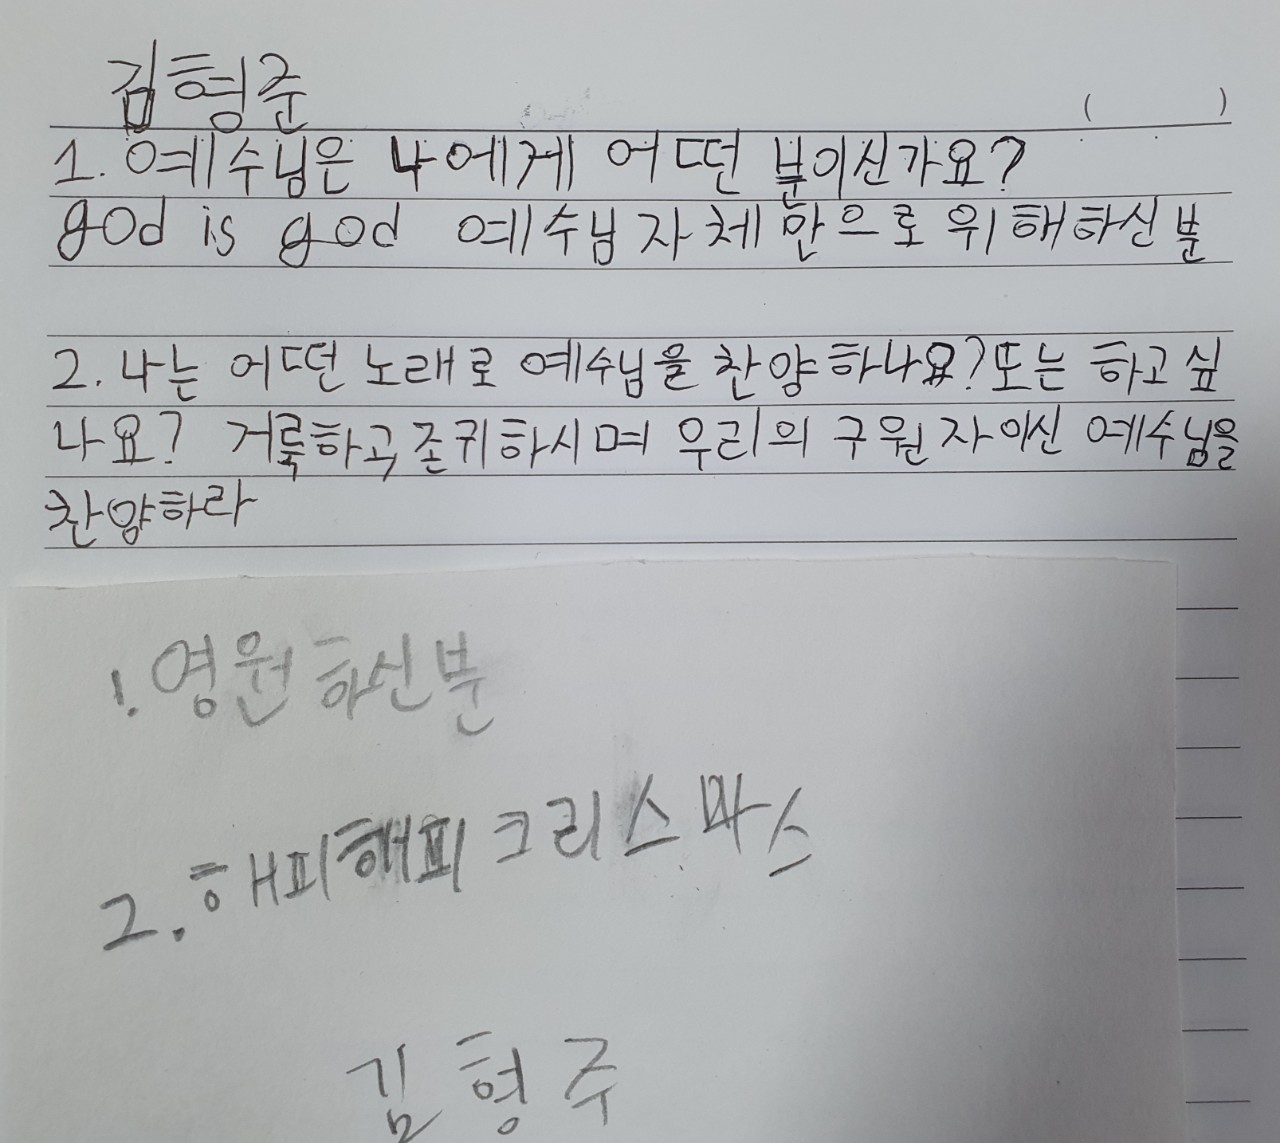 김형준
( )
1. 예수님은 나에게 어떤 분이신가요?
god is god 예수님 자체만으로 위해하신분
2. 나는 어떤 노래로 예수님을 찬양하나요? 또는 하고싶
나요? 거룩하곡존귀하시며 우리의 구원자이신 예수님을
찬양하라
1. 영원하신분
2. 해피해피크리스마스
김형주